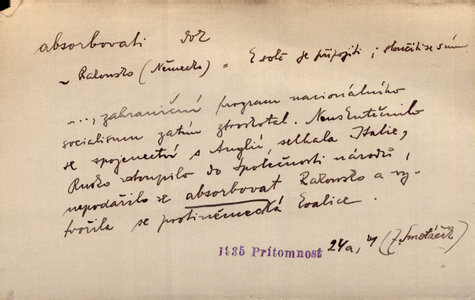 absorbovati dok
~ Rakousko (Německo) = k sobě je připojiti; sloučiti se s ním
..., zahraniční program nacionálního
socialismu zatím ztroskotal. Neuskutečnilo
se spojenectví s Anglií, selhala Italie,
Rusko vstoupilo do Společnosti národů,
nepodařilo se absorbovat Rakousko a vy-
tvořila se protiněmecká koalice.
1935 Přítomnost 24a, (J. Smetáček)